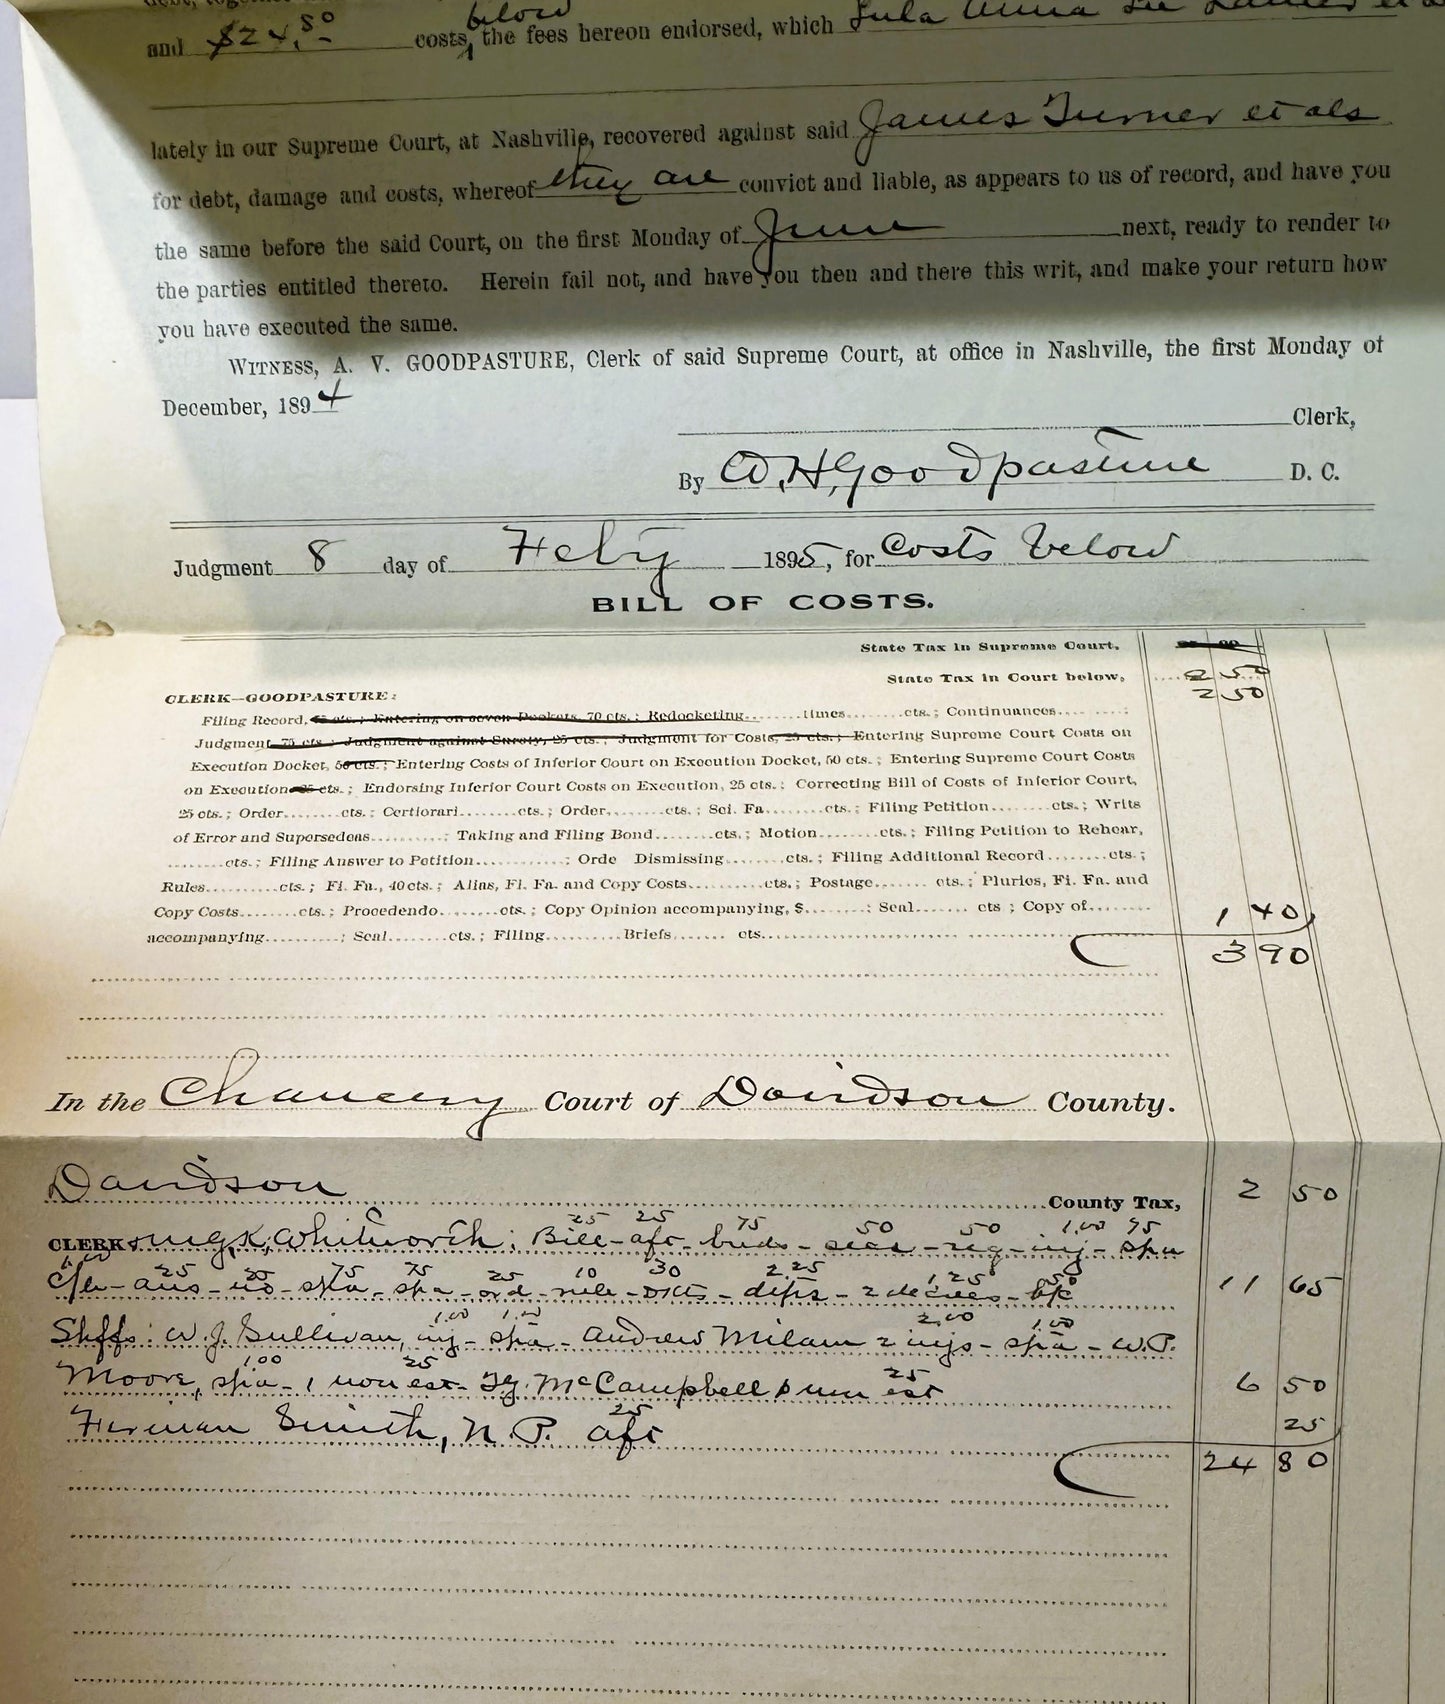 debt, together
below
and $24.80 costs, the fees hereon endorsed, which Lula Anna
lately in our Supreme Court, at Nashville, recovered against said James Turner et als
for debt, damage and costs, whereof they are convict and liable, as appears to us of record, and have you
the same before the said Court, on the first Monday of June next, ready to render to
the parties entitled thereto. Herein fail not, and have you then and there this writ, and make your return how
you have executed the same.
WITNESS, A. V. GOODPASTURE, Clerk of said Supreme Court, at office in Nashville, the first Monday of
December, 1894
Clerk,
By W. H. Goodpasture D. C.
Judgment 8 day of Feby 1895, for Costs below
BILL OF COSTS.
State Tax in Supreme Court,
State Tax in Court below, 2 50
2 50
CLERK—GOODPASTURE:
Filing Record, 75 cts.; Entering on seven Dockets, 70 cts.; Redocketing........times........cts.; Continuances.........:
Judgment 75 cts.; Judgment against Surety, 25 cts.; Judgment for Costs, 25 cts.; Entering Supreme Court Costs on
Execution Docket, 50 cts.; Entering Costs of Inferior Court on Execution Docket, 50 cts.; Entering Supreme Court Costs
on Execution 25 cts.; Endorsing Inferior Court Costs on Execution, 25 cts.; Correcting Bill of Costs of Inferior Court,
25 cts.; Order........cts.; Certiorari........cts.; Order,........cts.; Sci. Fa........cts.; Filing Petition........cts.; Writs
of Error and Supersedeas..........; Taking and Filing Bond.......cts.; Motion........cts.; Filing Petition to Rehear,
........cts.; Filing Answer to Petition............: Orde Dismissing........cts.; Filing Additional Record........cts.;
Rules..........cts.; Fi. Fa., 40 cts.; Alias, Fi. Fa. and Copy Costs..........cts.; Postage....... cts.; Pluries, Fi. Fa. and
Copy Costs.......cts.; Procedendo........cts.; Copy Opinion accompanying, $........: Seal....... cts ; Copy of........ 1 40
accompanying..........; Seal.......cts.; Filing..........Briefs....... cts.
3 90
In the Chancery Court of Davidson County.
Davidson County Tax, 2 50
25 25 75 50 50 1.00 75
CLERK Whitworth; Bill - aft - bnds - secs - reg - inj - spa
25 25 75 75 25 10 30 2.25 1.25 50
ans - spa - spa - ord - rule - octs - dfts - 2 decrees - b/c 11 65
1.00 1.00 2.00 1.00
Shffs: W. J. Sullivan, inj - spa - Andrew Milam 2 injs - spa - W. P.
1.00 25 25
Moore, spa - 1 non est - McCampbell non est 6 50
25
Herman Smith, N. P. aft 25
24 80